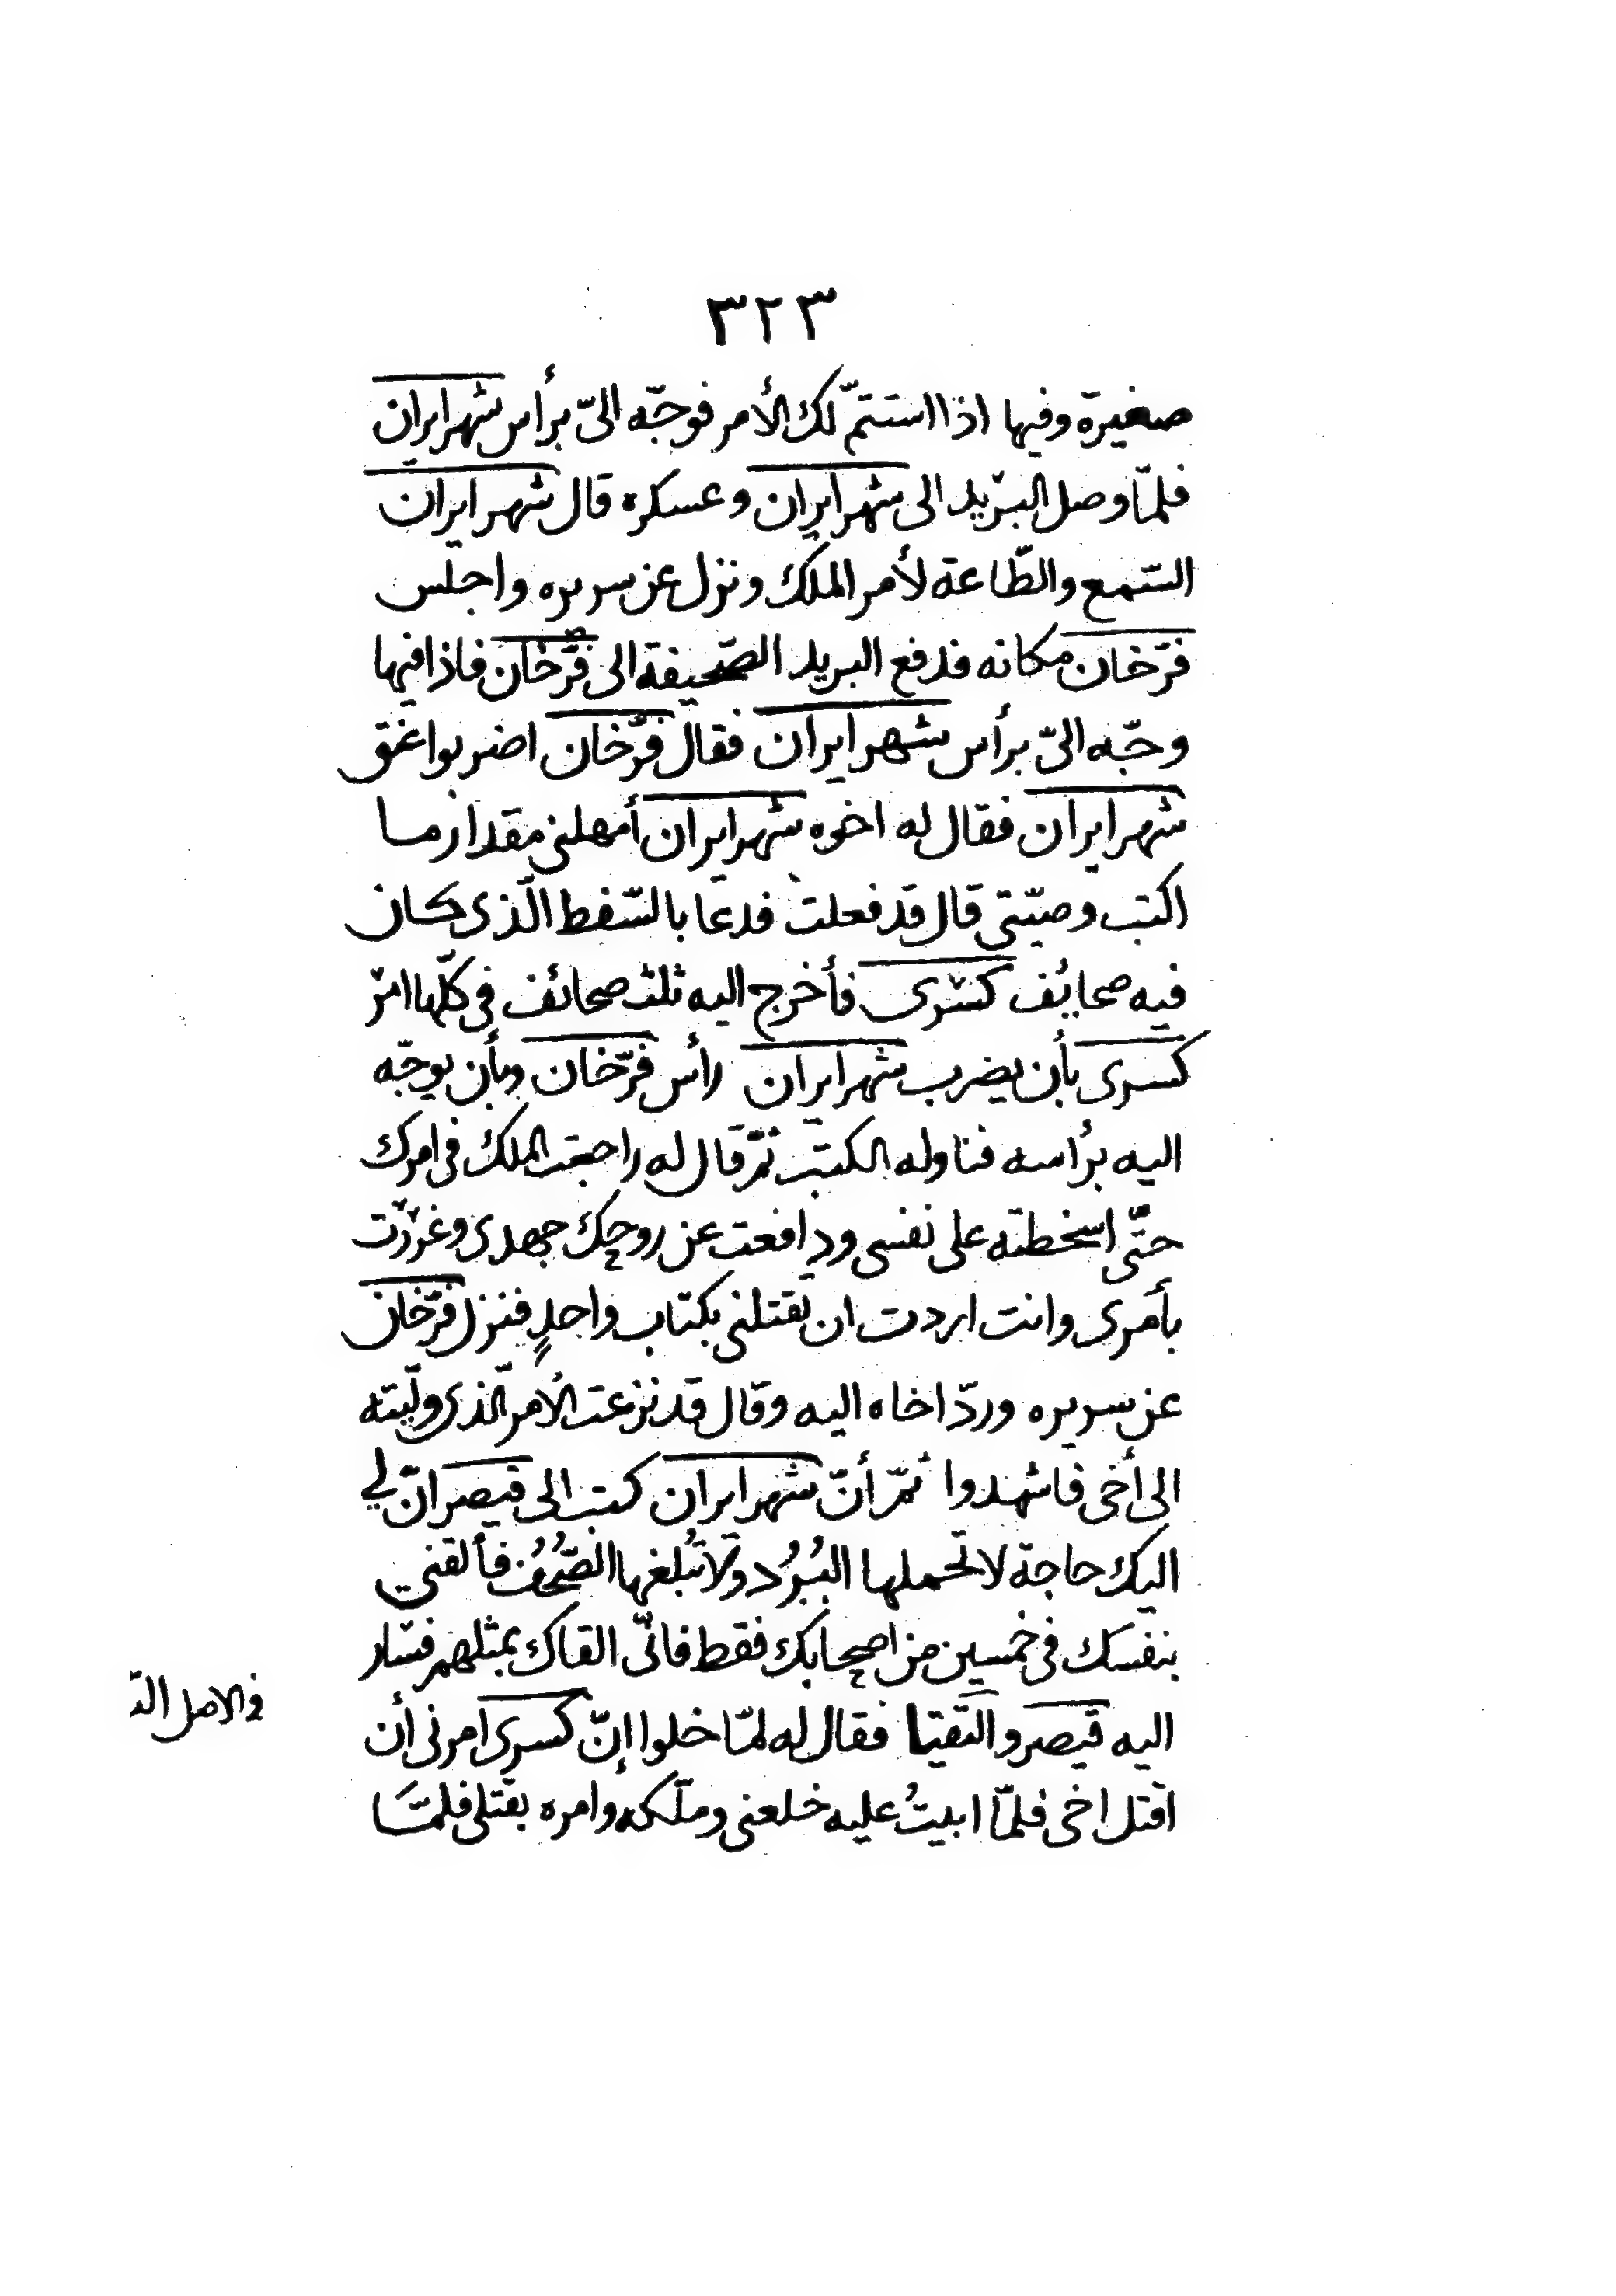 ٣٢٣
صغيرة وفيها اذا استتمّ لك الأمر فوجّه الىّ برأس شهرايران
فلمّا وصل البريد الى شهرايران وعسكره قال شهرايران
السّمع والطّاعة لأمر الملك ونزل عن سريره واجلس
فرّخان مكانه فدفع البريد الصّحيفة الى فرّخان فاذا فيها
وجّه الىّ برأس شهرايران فقال فرّخان اضربوا عنق
شهرايران فقال له اخوه شهرايران أمهلنى مقدار ما
اكتب وصيّتى قال قد فعلت فدعا بالسّفط الّذى كان
فيه صحايف كسرى فأخرج اليه ثلث صحائف فى كلّها امر
كسرى بأن يضرب شهرايران رأس فرّخان وبأن يوجّه
اليه برأسه فناوله الكتب ثمّ قال له راجعت الملك فى امرك
حتّى اسخطته على نفسى ودافعت عن روحك جهدى وغرّرت
بأمرى وانت اردت ان تقتلنى بكتاب واحدٍ فنزل فرّخان
عن سريره وردّ اخاه اليه وقال قد نزعت الأمر الّذى ولّيته
الى أخى فاشهدوا ثمّ أنّ شهرايران كتب الى قيصر انّ لي
اليك حاجة لا تحملها البُرُد ولا تُبلغها الصُّحُف فألقنى
بنفسك فى خمسين من اصحابك فقط فانّى القاك بمثلهم فسار
اليه قيصر والتقيا فقال له لمّا خلوا إنّ كسرى امرنى أن
اقتل اخى فلمّا ابيتُ عليه خلعنى وملّكه وامره بقتلى فلمّا
فى الاصل التـ